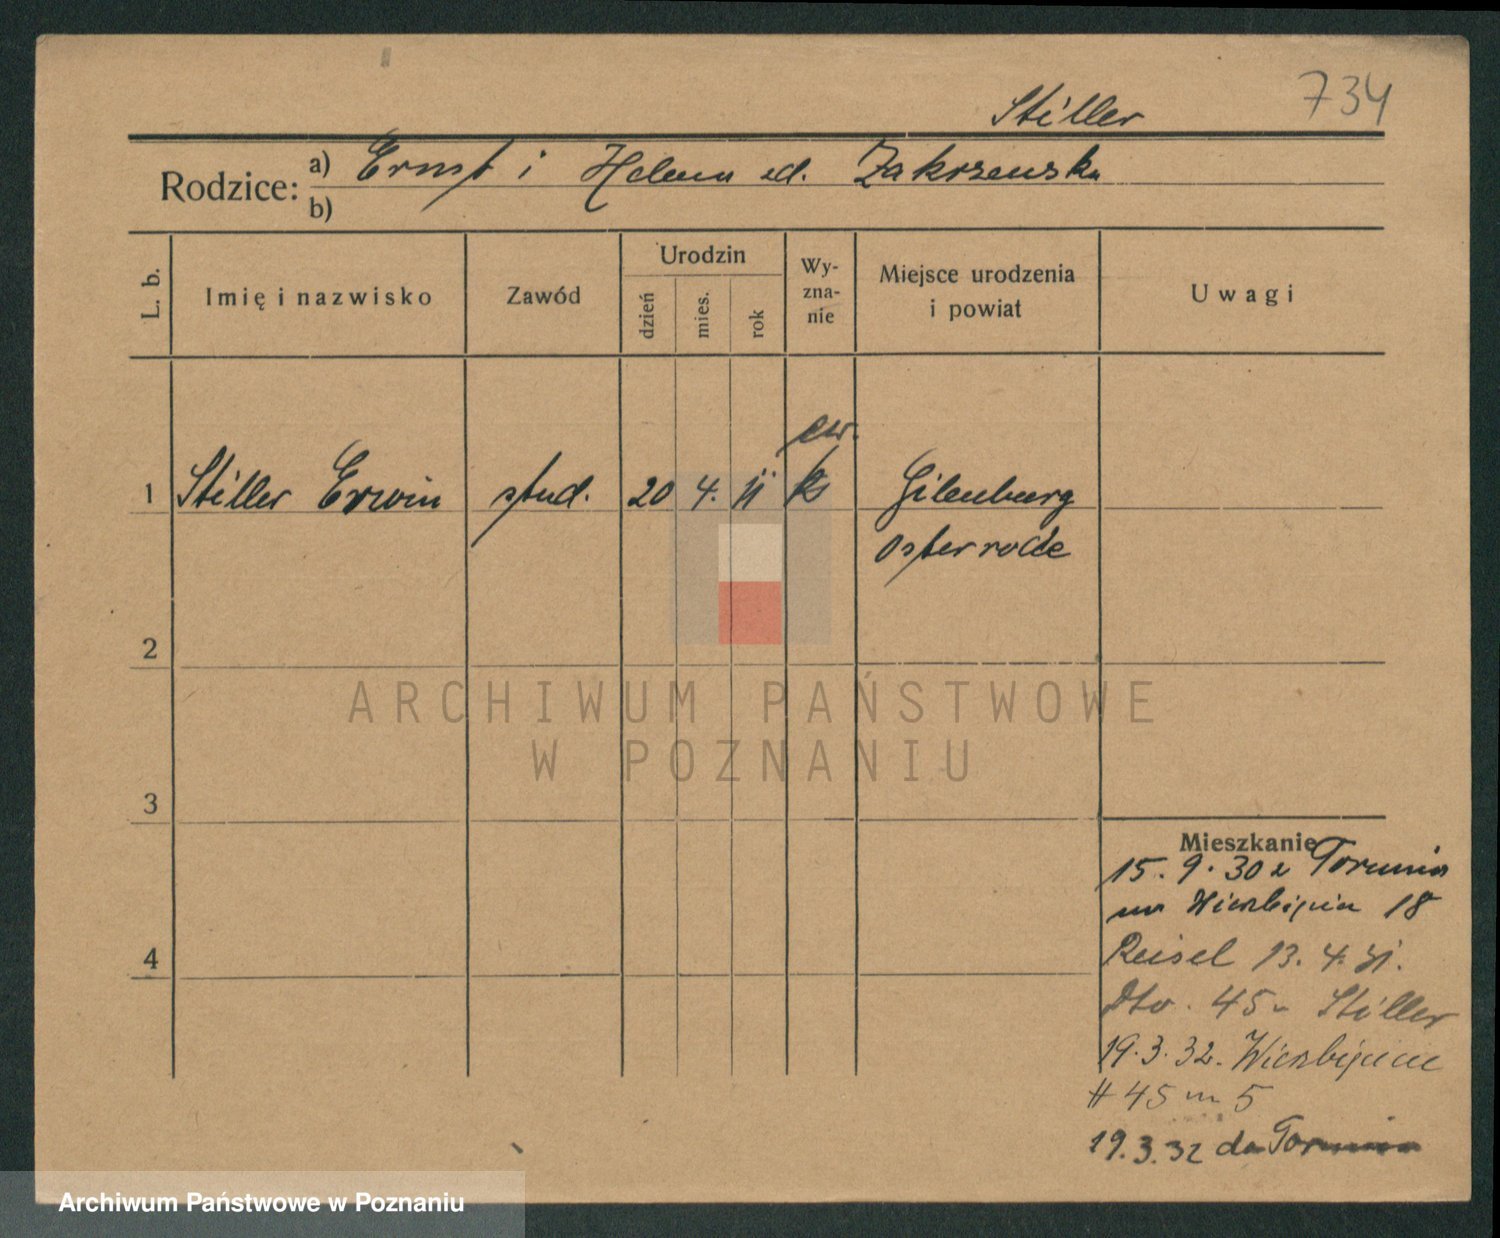 734
Stiller
Rodzice: a) Ernst i Helena zd. Zakrzewska
b)
L. b. Imię i nazwisko Zawód Urodzin dzień mies. rok Wy-zna-nie Miejsce urodzenia i powiat Uwagi
ew.
1 Stiller Erwin stud. 20 4. 11 Gilenburg
Osterrode
2
ARCHIWUM PAŃSTWOWE
W POZNANIU
3
Mieszkanie
15. 9. 30 z Torunia
18
Reisel 13. 4. 31.
Dto. 45 Stiller
19. 3. 32. Wierzbięcice
# 45 m 5
19. 3. 32 do Torunia
4
Archiwum Państwowe w Poznaniu